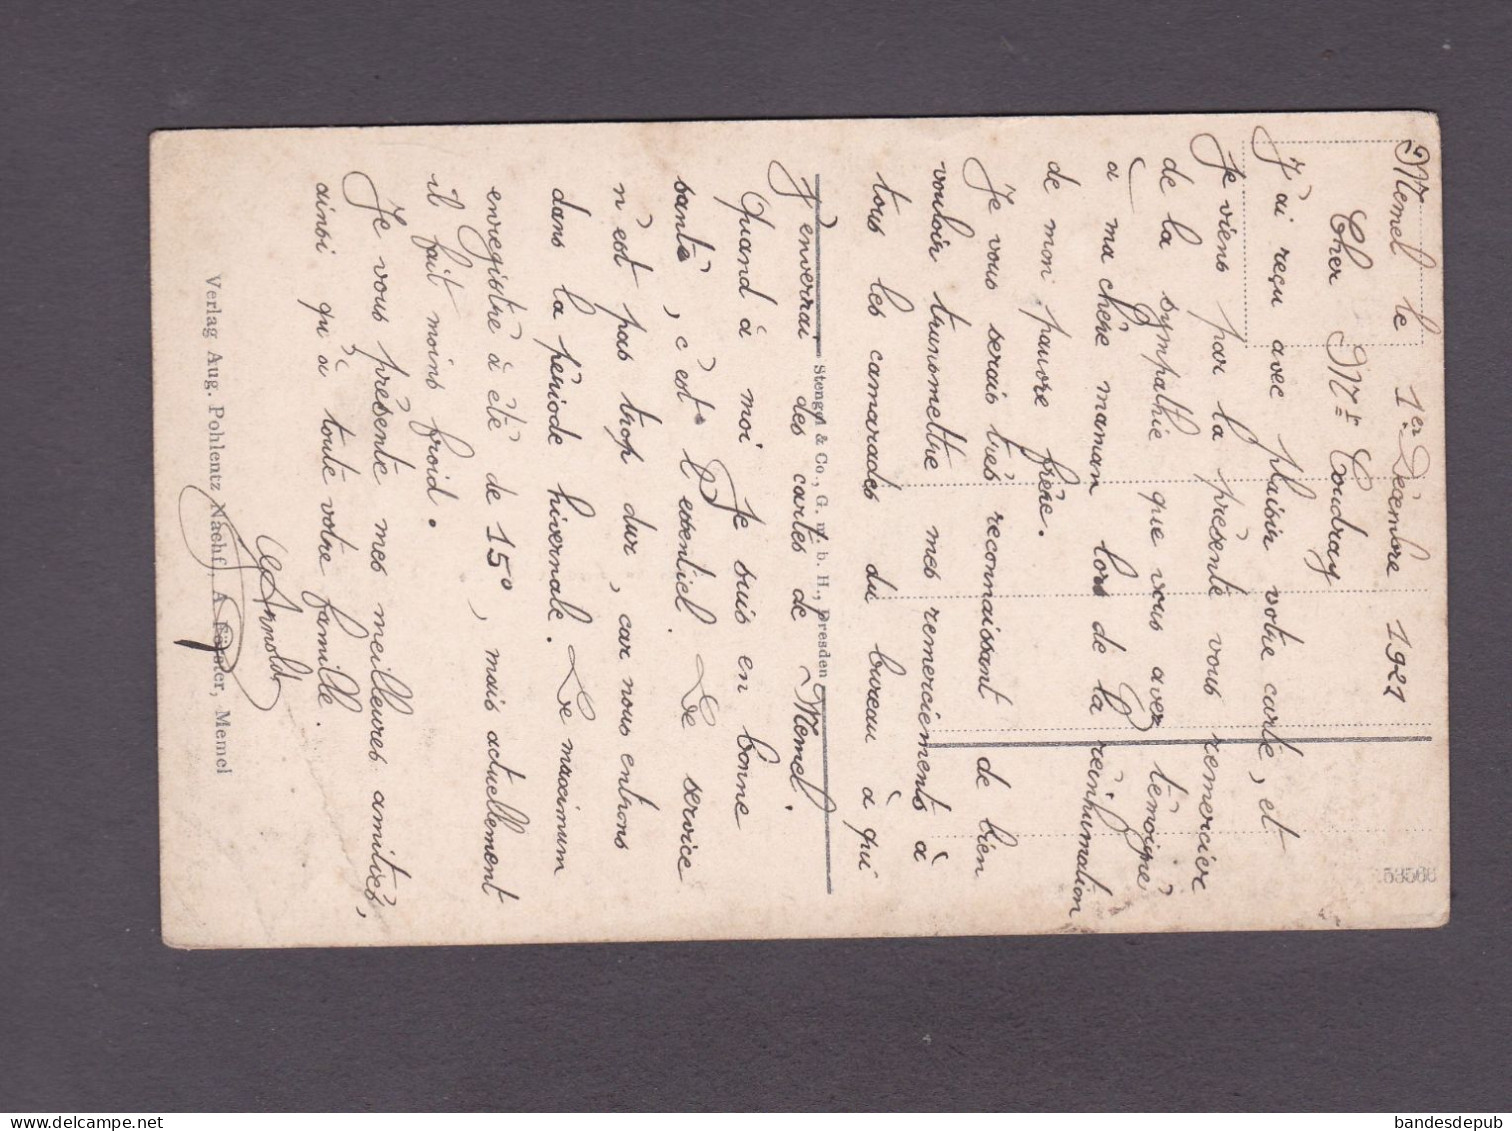 Memel le 1er Décembre 1921
Cher Mr Coudray
J'ai reçu avec plaisir votre carte, et
Je viens par la présente vous remercier
de la sympathie que vous avez témoigné
à ma chère maman lors de la réinhumation
de mon pauvre frère.
Je vous serais très reconnaissant de bien
vouloir transmettre mes remerciements à
tous les camarades du bureau à qui
J'enverrai des cartes de Memel.
Quand à moi Je suis en bonne
santé, c'est l'essentiel. Le service
n'est pas trop dur, car nous entrons
dans la période hivernale. Le maximum
enregistré à été de 15°, mais actuellement
il fait moins froid.
Je vous présente mes meilleures amitiés,
ainsi qu'à toute votre famille.
Arnold
Stengel & Co., G. m. b. H., Dresden
Verlag Aug. Pohlentz Nachf., A. Förster, Memel
53566
bandesdepub